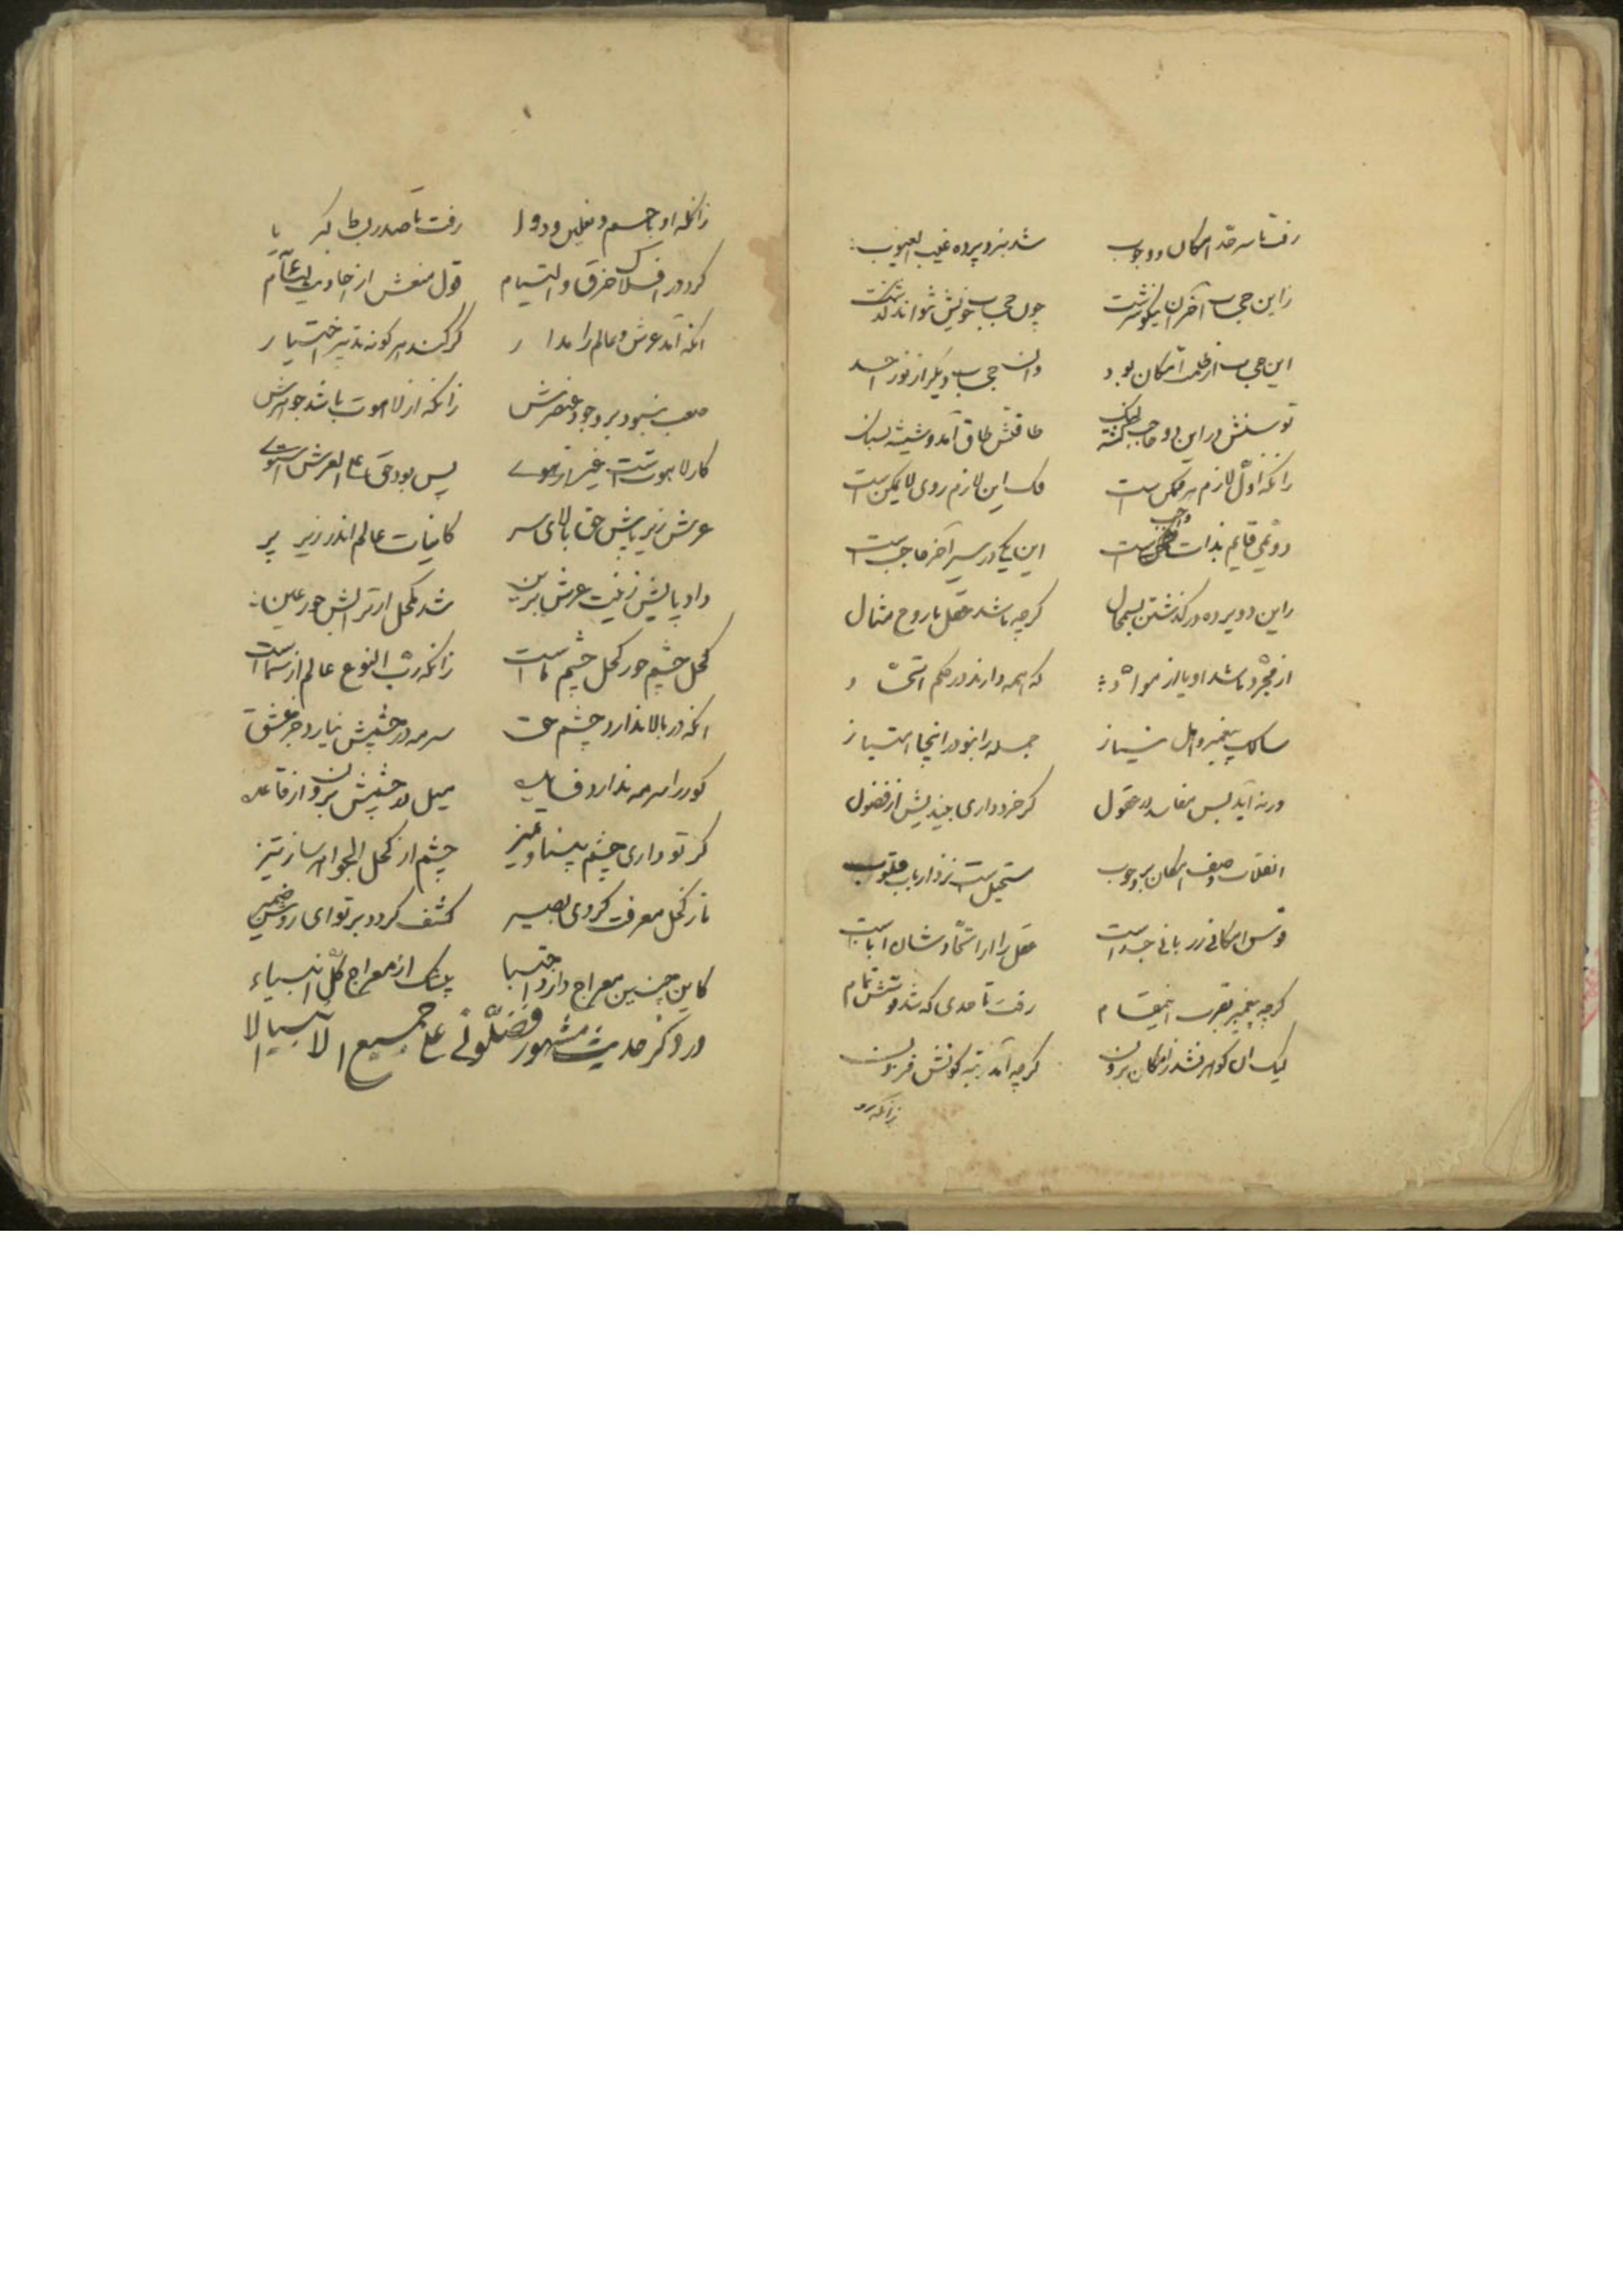 رفت تا سر حد امکان و وجوب شد بنزد پرده غیب الغیوب
زاین حجاب آخر آن نیکو سرشت چون حجاب خویش نتواند گذشت
این حجاب از ظلمت امکان بود وان حجاب دیگر از نور احد
توسنش در این دو حاجب لنگ گشته طاقتش طاق آمد و شیشه بسان
زانکه اول لازم هر ممکن است فک این لازم روی لا یمکن است
دویمی قایم بذات واجب است این یکی در سیر آخر حاجب است
زاین دو پرده در گذشتن بس محال گرچه باشد عقل با روح مثال
از مجرد باشد او یا از مواد که همه دارند در حکم اتحاد
سالک پیغمبر و اهل نیاز جمله را نبود در اینجا امتیاز
ورنه آید بس مفاسد در عقول گر خرد داری بیندیش از فضول
انقلاب وصف امکان بر وجوب مستحیل است نزد ارباب قلوب
قوس امکانی ز ربانی جداست عقل را از اتحادشان اباست
گرچه پیغمبر بقرب اینمقام رفت تا حدی که شد قوسش تمام
لیک آن گوهر نشد ز امکان برون گرچه آمد رتبه کونش فزون
زانکه او
زانکه او با جسم و نعلین و ردا رفت تا صدر بساط کبریا
کرد در افلاک خرق و التیام قول منعش از احادیث عام
انکه آمد عرش و عالم را مدار گر کند هر گونه تدبیر اختیار
صعب نبود بر وجود عنصرش زانکه از لاهوت باشد جوهرش
کار لاهوتست غیر از پس بود حق علی العرش استوی
عرش زیر پاش حق بالای سر کاینات عالم اندر زیر پر
داد پایش زینت عرش برین شد مکحل از ترابش حور عین
کحل چشم حور کحل چشم ماست زانکه رب النوع عالم از سماست
انکه در بالا ندارد چشم حق سرمه در چشمش نیارد جز
کور را سرمه ندارد فایده میل در چشمش برون از قاعده
گر تو داری چشم بینا و تمیز چشم از کحل الجواهر ساز تیز
تا ز کحل معرفت گردی بصیر کشف گردد بر تو ای روشن ضمیر
کاین چنین معراج دارد اجتبا بیشک از معراج کل انبیاء
در ذکر حدیث مشهور فضلونی علی جمیع الانبیا الا